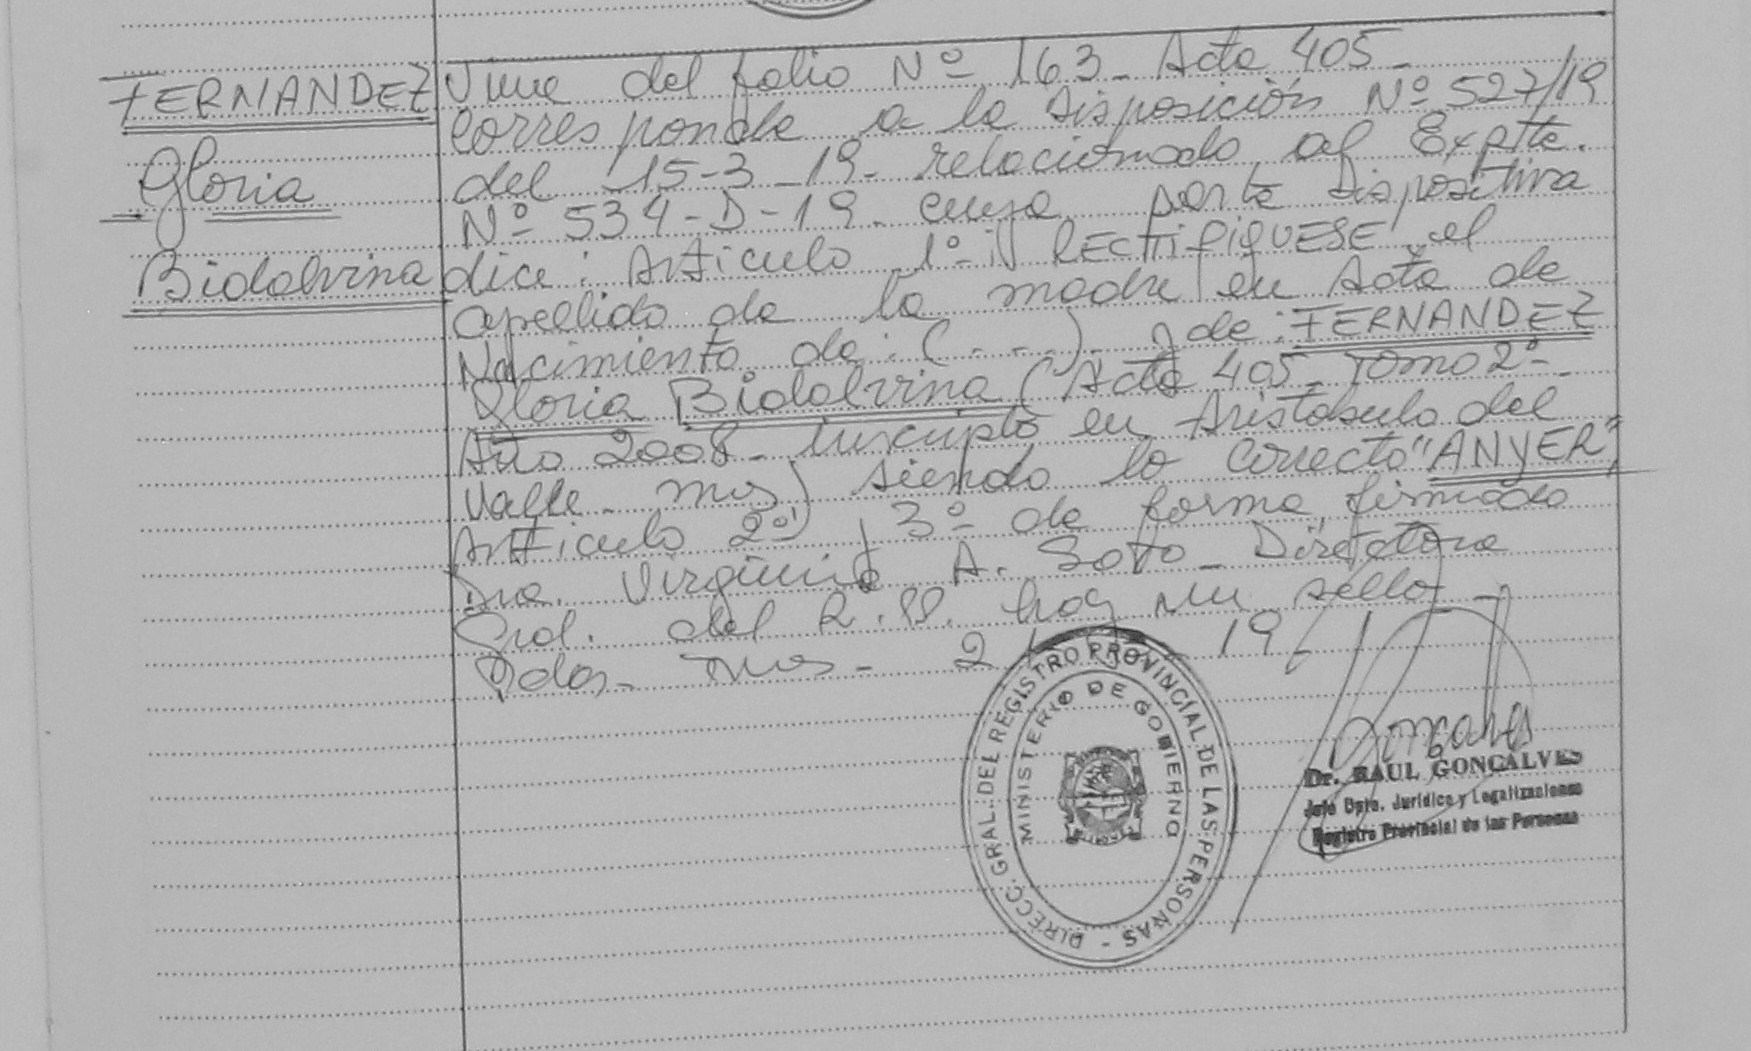 FERNANDEZ
Gloria
Bidalvina
Viene del folio Nº 163 - Acta 405 -
Corresponde a la Disposición Nº 527/19
del 15-3-19 - relacionado al Expte.
Nº 534-D-19 - cuya parte Dispositiva
dice: Artículo 1º- RECTIFIQUESE el
apellido de la madre en Acta de
Nacimiento de: (- - -). y de: FERNANDEZ
Gloria Bidalvina (Acta 405 - Tomo 2º -
Año 2008 - inscripto en Aristóbulo del
Valle - Mes) siendo lo correcto "ANYER",
Artículo 2º y 3º de forma, firmado
Dra. Virginia A. Soto - Directora
Gral. del R.P. hay un sello -
Pdas - Mnes - 2 19
DIRECC. GRAL. DEL REGISTRO PROVINCIAL DE LAS PERSONAS -
MINISTERIO DE GOBIERNO
Dr. RAUL GONCALVES
Jefe Dpto. Jurídico y Legalizaciones
Registro Provincial de las Personas